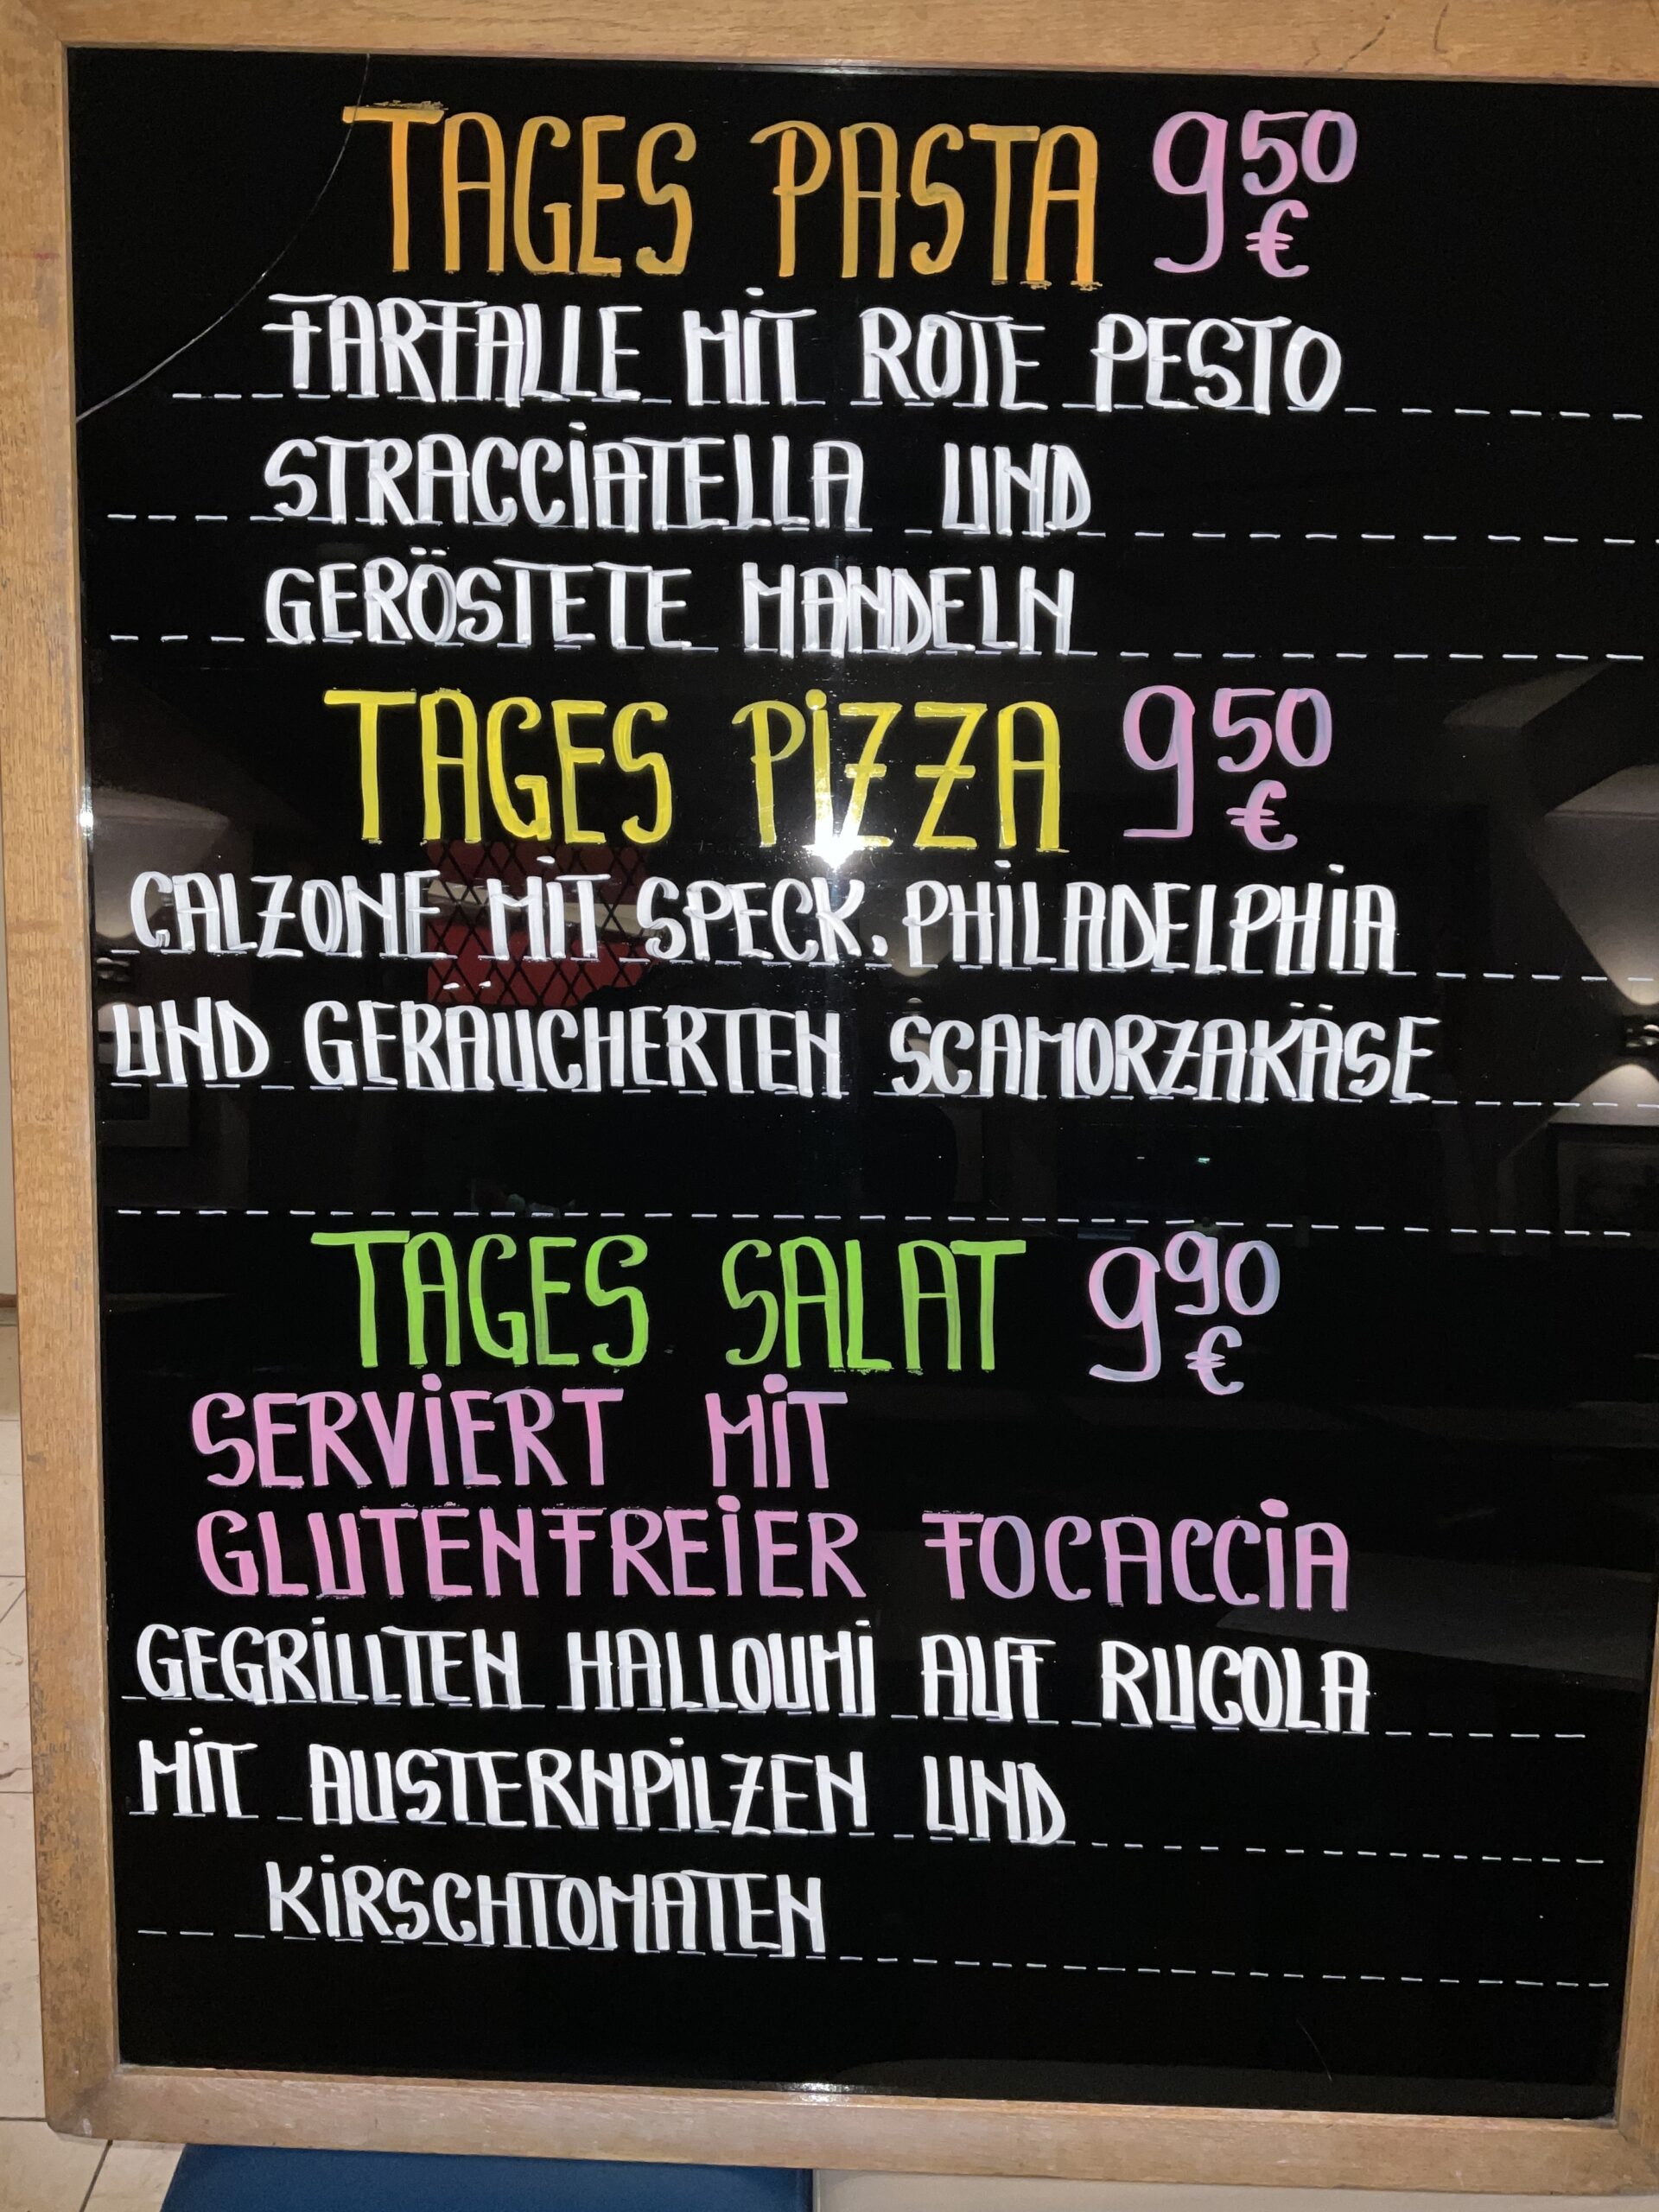 TAGES PASTA 9 50 €
FARFALLE MIT ROTE PESTO
STRACCIATELLA UND
GERÖSTETE MANDELN
TAGES PIZZA 9 50 €
CALZONE MIT SPECK, PHILADELPHIA
UND GERÄUCHERTEN SCAMORZAKÄSE
TAGES SALAT 9 90 €
SERVIERT MIT
GLUTENFREIER FOCACCIA
GEGRILLTEN HALLOUMI AUF RUCOLA
MIT AUSTERNPILZEN UND
KIRSCHTOMATEN